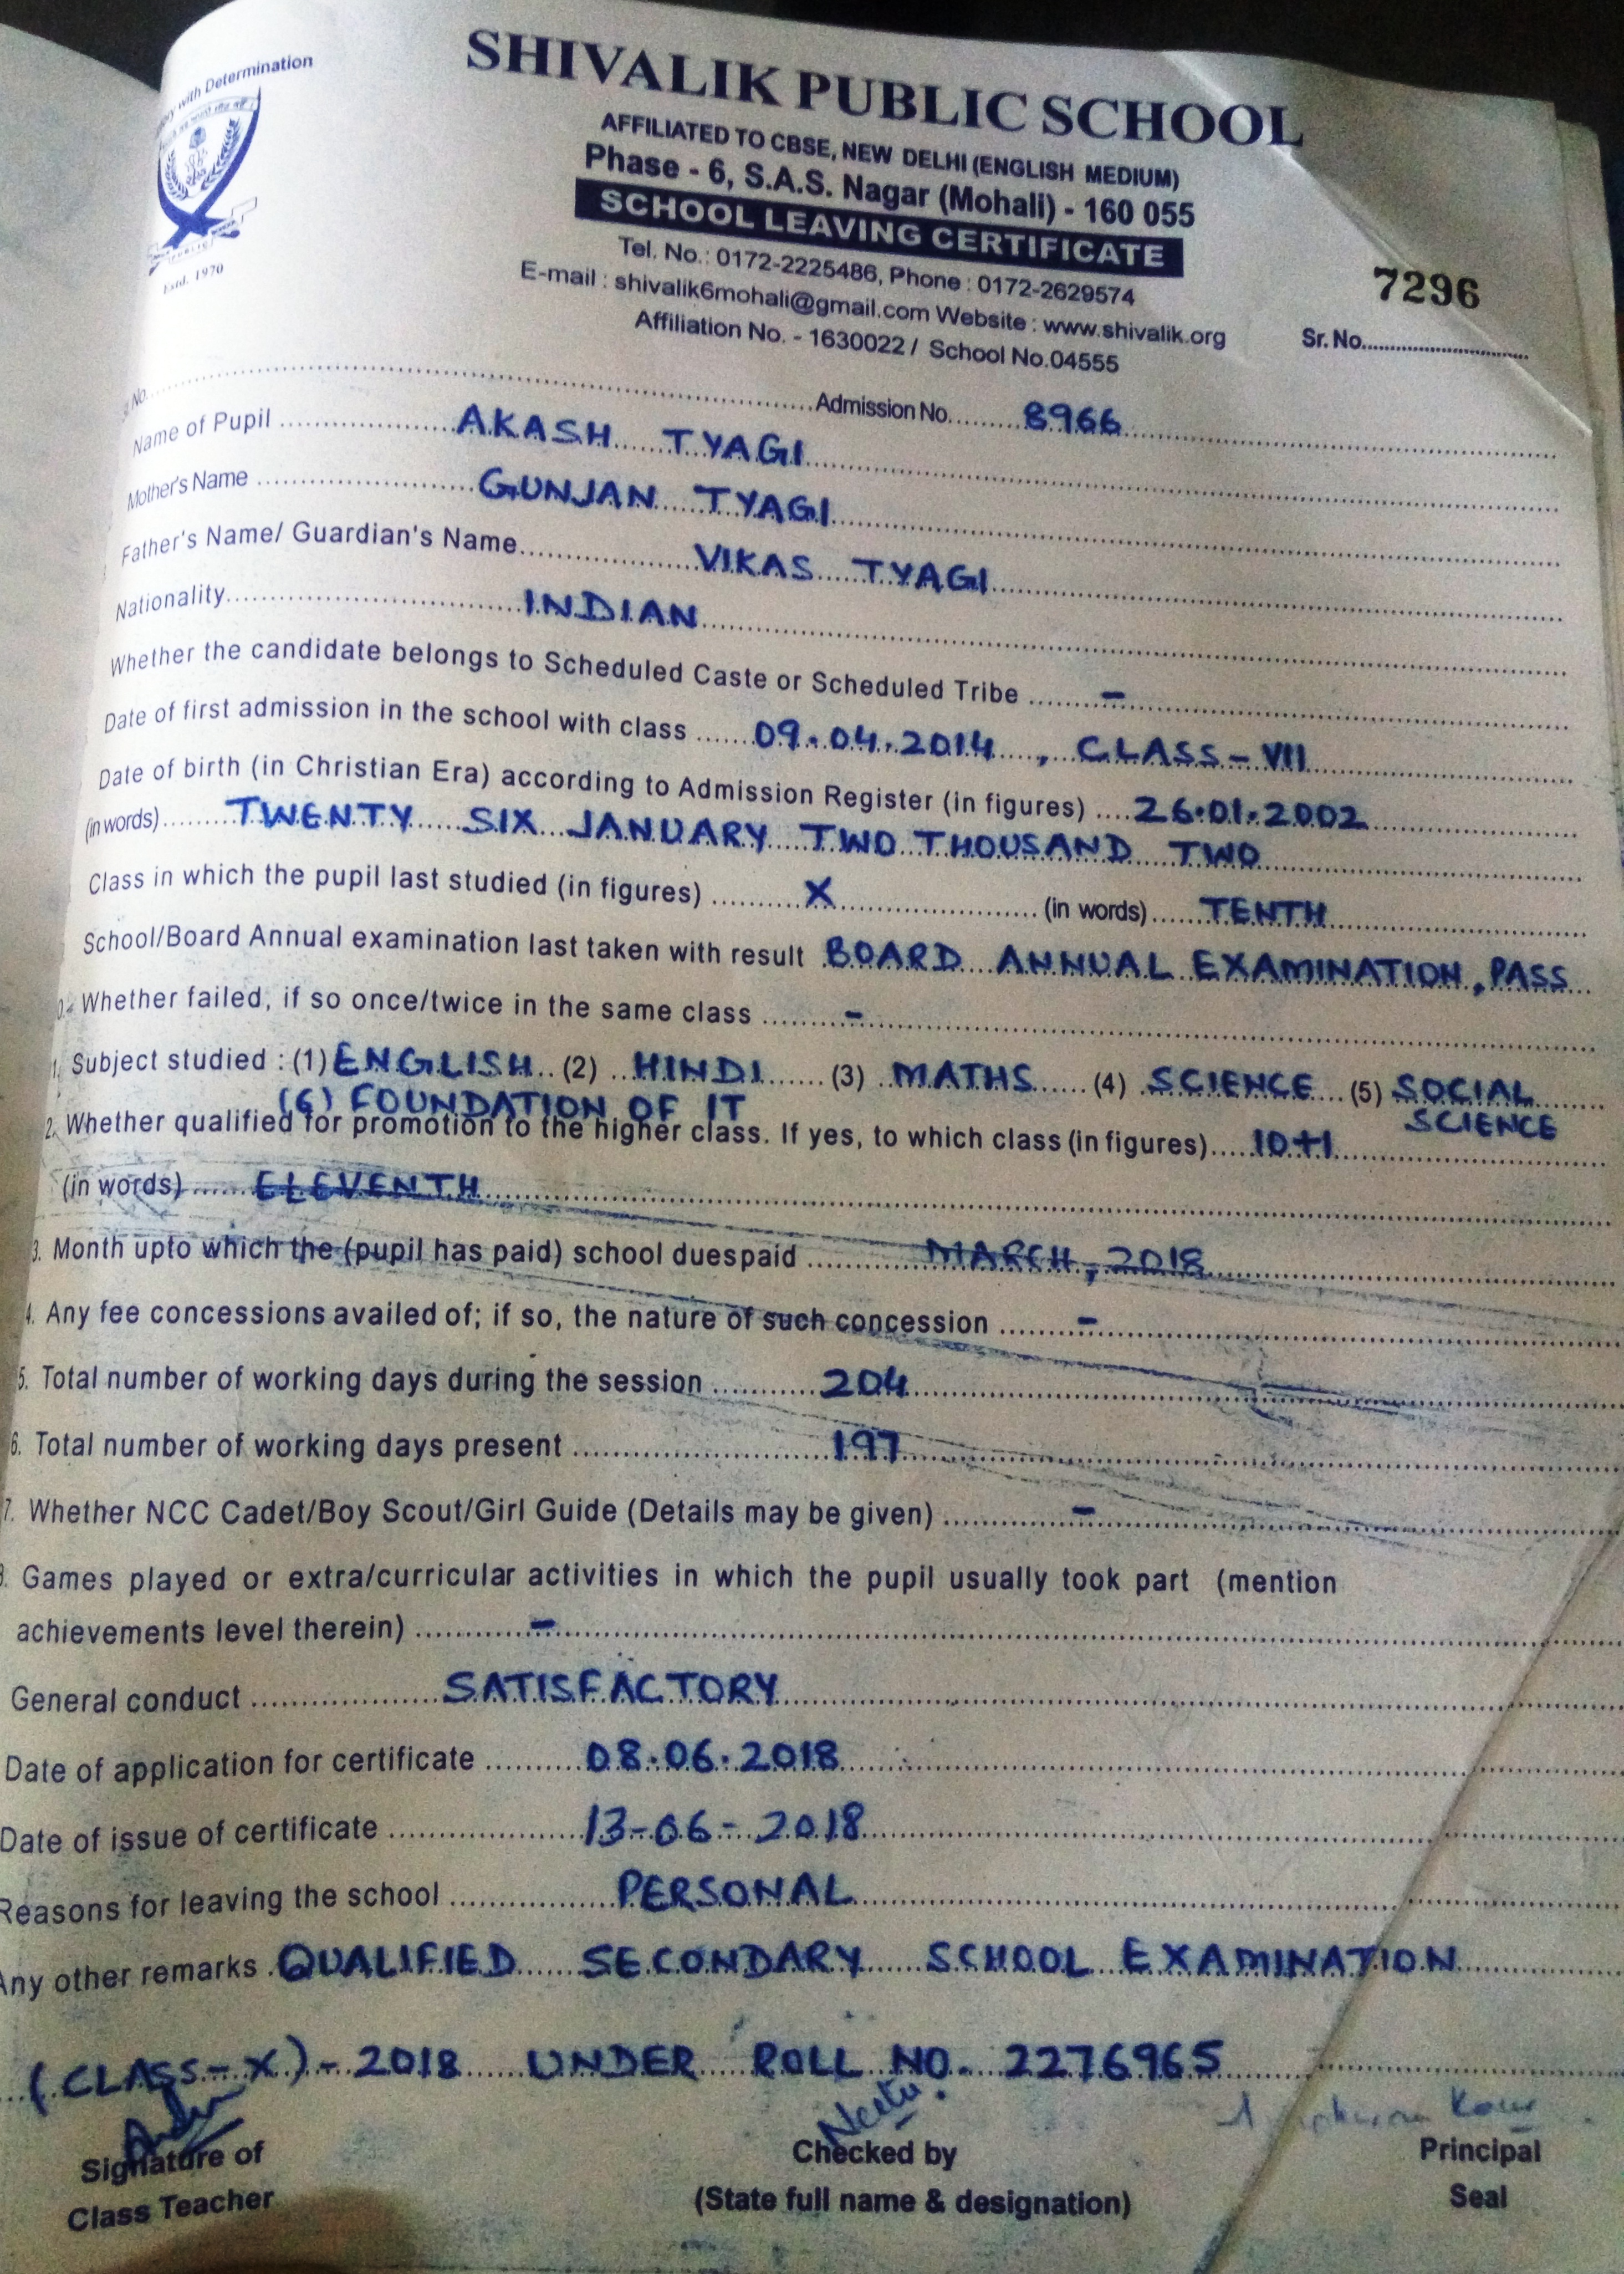 with Determination
Estd. 1970
SHIVALIK PUBLIC SCHOOL
AFFILIATED TO CBSE, NEW DELHI (ENGLISH MEDIUM)
Phase - 6, S.A.S. Nagar (Mohali) - 160 055
SCHOOL LEAVING CERTIFICATE
Tel. No.: 0172-2225486, Phone : 0172-2629574
E-mail : shivalik6mohali@gmail.com Website : www.shivalik.org
Affiliation No. - 1630022 / School No.04555
7296
Sr. No.
No. Admission No. 8966
Name of Pupil AKASH TYAGI
Mother's Name GUNJAN TYAGI
Father's Name/ Guardian's Name VIKAS TYAGI
Nationality INDIAN
Whether the candidate belongs to Scheduled Caste or Scheduled Tribe -
Date of first admission in the school with class 09.04.2014, CLASS-VII
Date of birth (in Christian Era) according to Admission Register (in figures) 26.01.2002
(in words) TWENTY SIX JANUARY TWO THOUSAND TWO
Class in which the pupil last studied (in figures) X (in words) TENTH
School/Board Annual examination last taken with result BOARD ANNUAL EXAMINATION, PASS
Whether failed, if so once/twice in the same class -
1. Subject studied : (1) ENGLISH (2) HINDI (3) MATHS (4) SCIENCE (5) SOCIAL SCIENCE
(6) FOUNDATION OF IT
2. Whether qualified for promotion to the higher class. If yes, to which class (in figures) 10+1
(in words) ELEVENTH
3. Month upto which the (pupil has paid) school duespaid MARCH, 2018
4. Any fee concessions availed of; if so, the nature of such concession -
5. Total number of working days during the session 204
6. Total number of working days present 197
7. Whether NCC Cadet/Boy Scout/Girl Guide (Details may be given) -
8. Games played or extra/curricular activities in which the pupil usually took part (mention
achievements level therein) -
General conduct SATISFACTORY
Date of application for certificate 08.06.2018
Date of issue of certificate 13-06-2018
Reasons for leaving the school PERSONAL
Any other remarks QUALIFIED SECONDARY SCHOOL EXAMINATION
(CLASS-X)-2018 UNDER ROLL NO. 2276965
Neetu Kaur
Signature of Checked by Principal
Class Teacher (State full name & designation) Seal